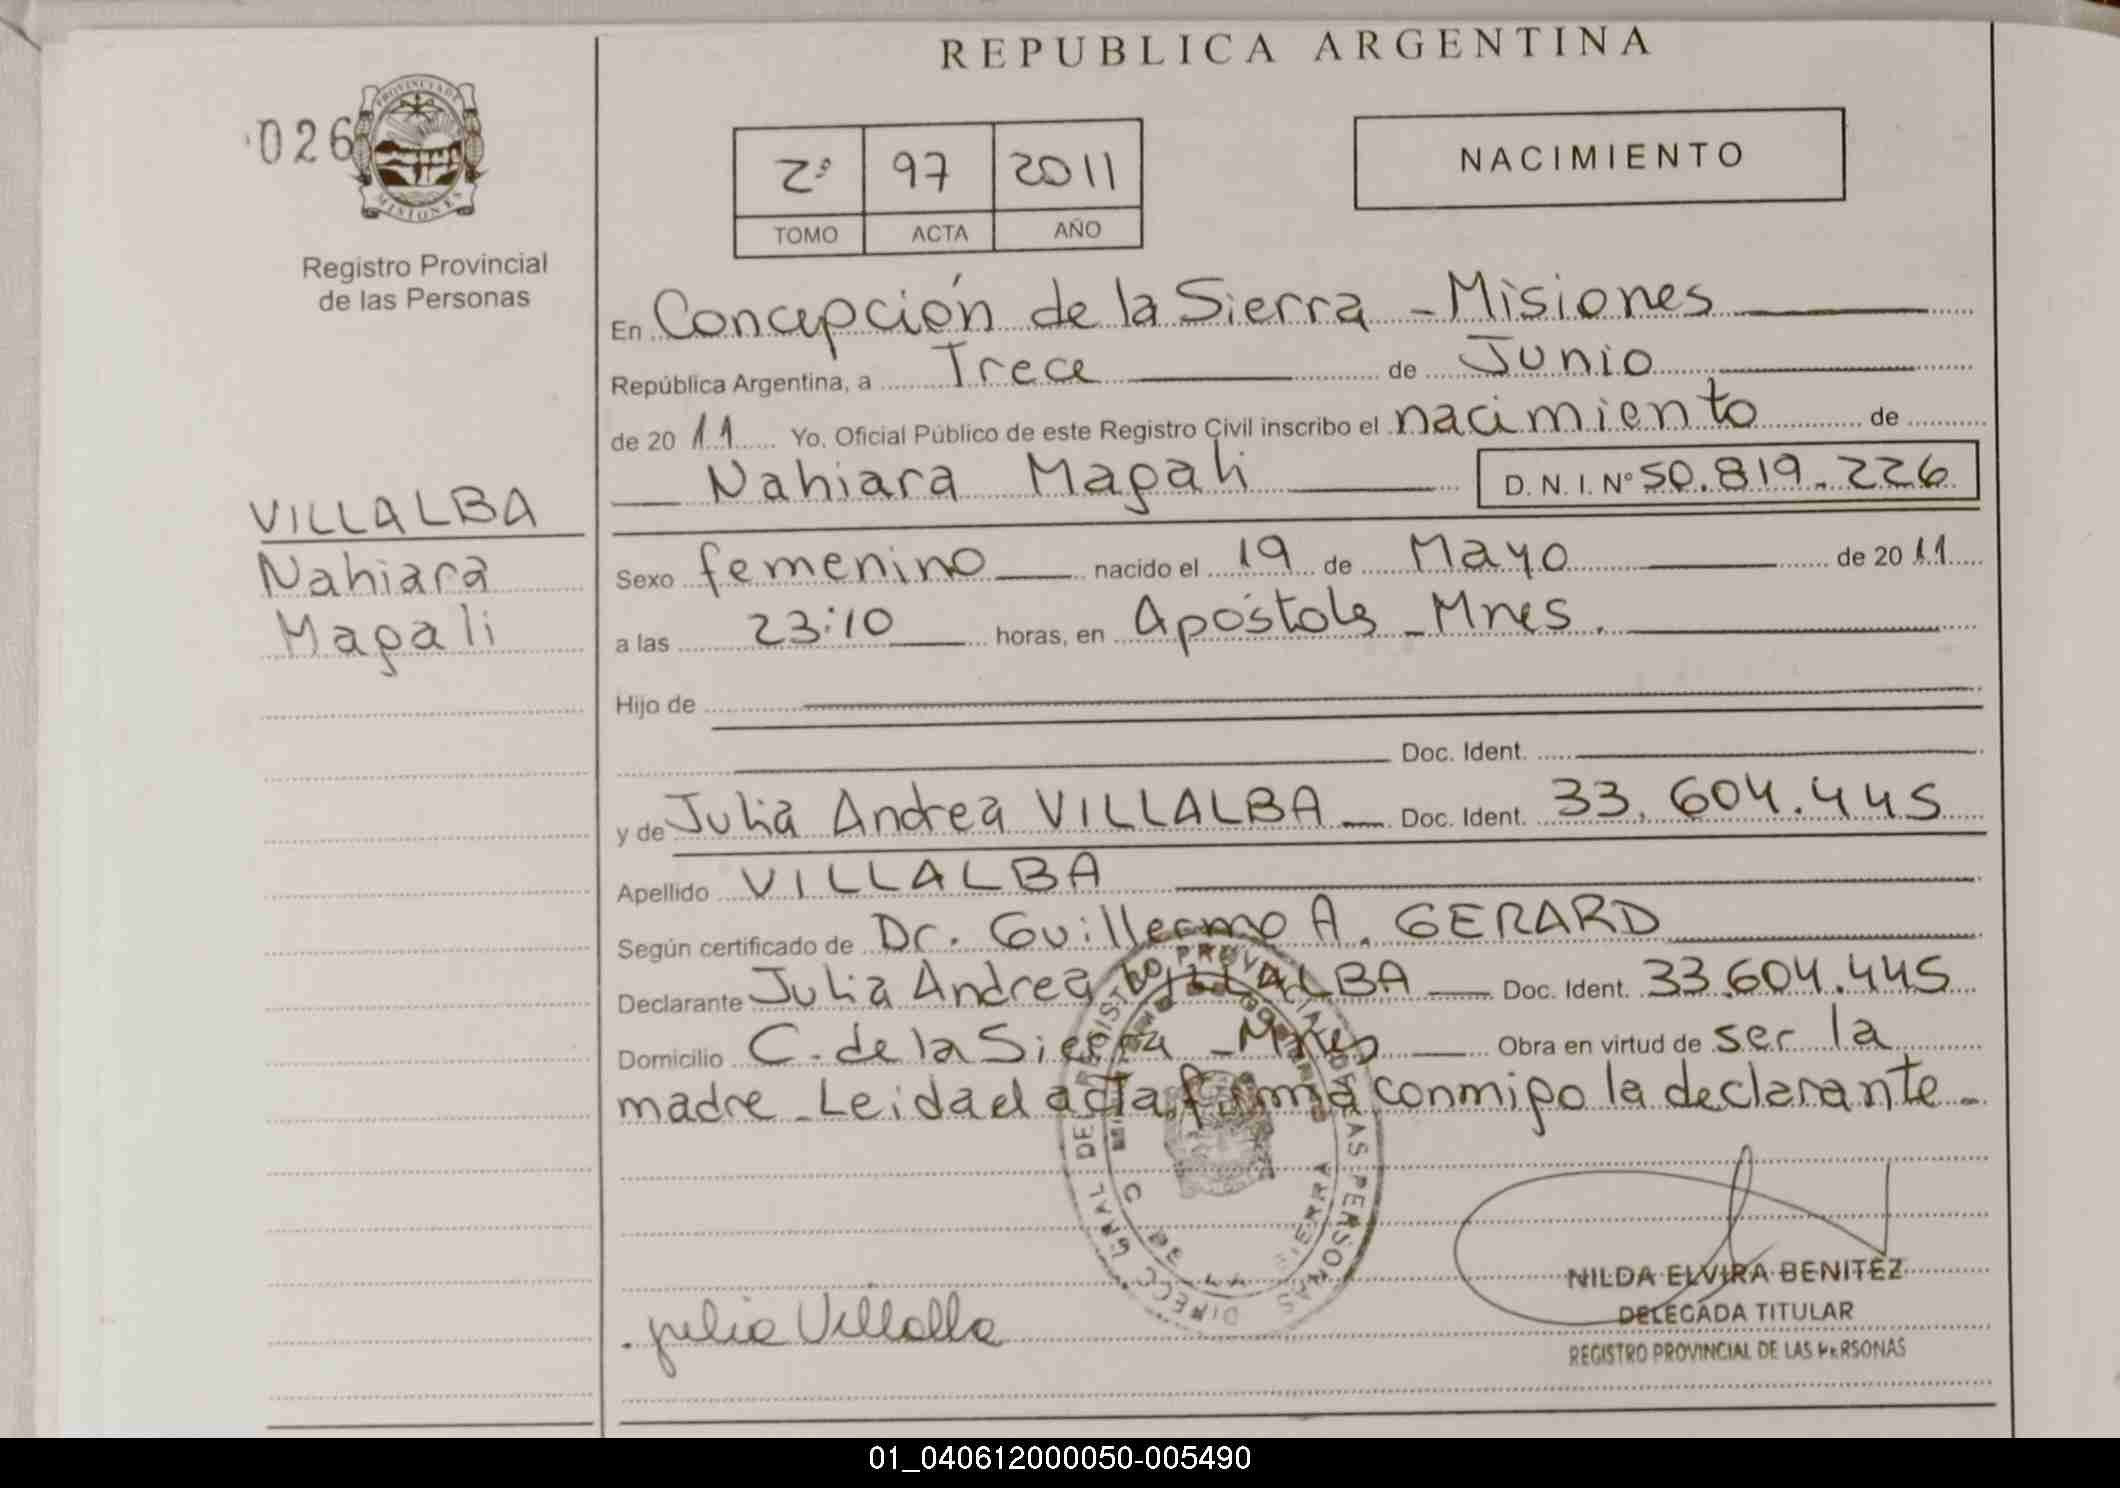 REPUBLICA ARGENTINA
026
PROVINCIA DE
MISIONES
Registro Provincial
de las Personas
2º 97 2011
TOMO ACTA AÑO
NACIMIENTO
En Concepción de la Sierra - Misiones
República Argentina, a Trece de Junio
de 20 11 Yo, Oficial Público de este Registro Civil inscribo el nacimiento de
Nahiara Magali D. N. I. Nº 50.819.226
VILLALBA
Nahiara
Magali
Sexo femenino nacido el 19 de Mayo de 20 11
a las 23:10 horas, en Apóstoles - Mnes.
Hijo de
Doc. Ident.
y de Julia Andrea VILLALBA Doc. Ident. 33.604.445
Apellido VILLALBA
Según certificado de Dr. Guillermo A. GERARD
Declarante Julia Andrea VILLALBA Doc. Ident. 33.604.445
Domicilio C. de la Sierra - Mnes Obra en virtud de ser la
madre - Leida el acta, firma conmigo la declarante -
DIRECC. GRAL. DE REGISTRO PROVINCIAL DE LAS PERSONAS
C. DE LA SIERRA
Julia Villalba
NILDA ELVIRA BENITEZ
DELEGADA TITULAR
REGISTRO PROVINCIAL DE LAS PERSONAS
01_040612000050-005490